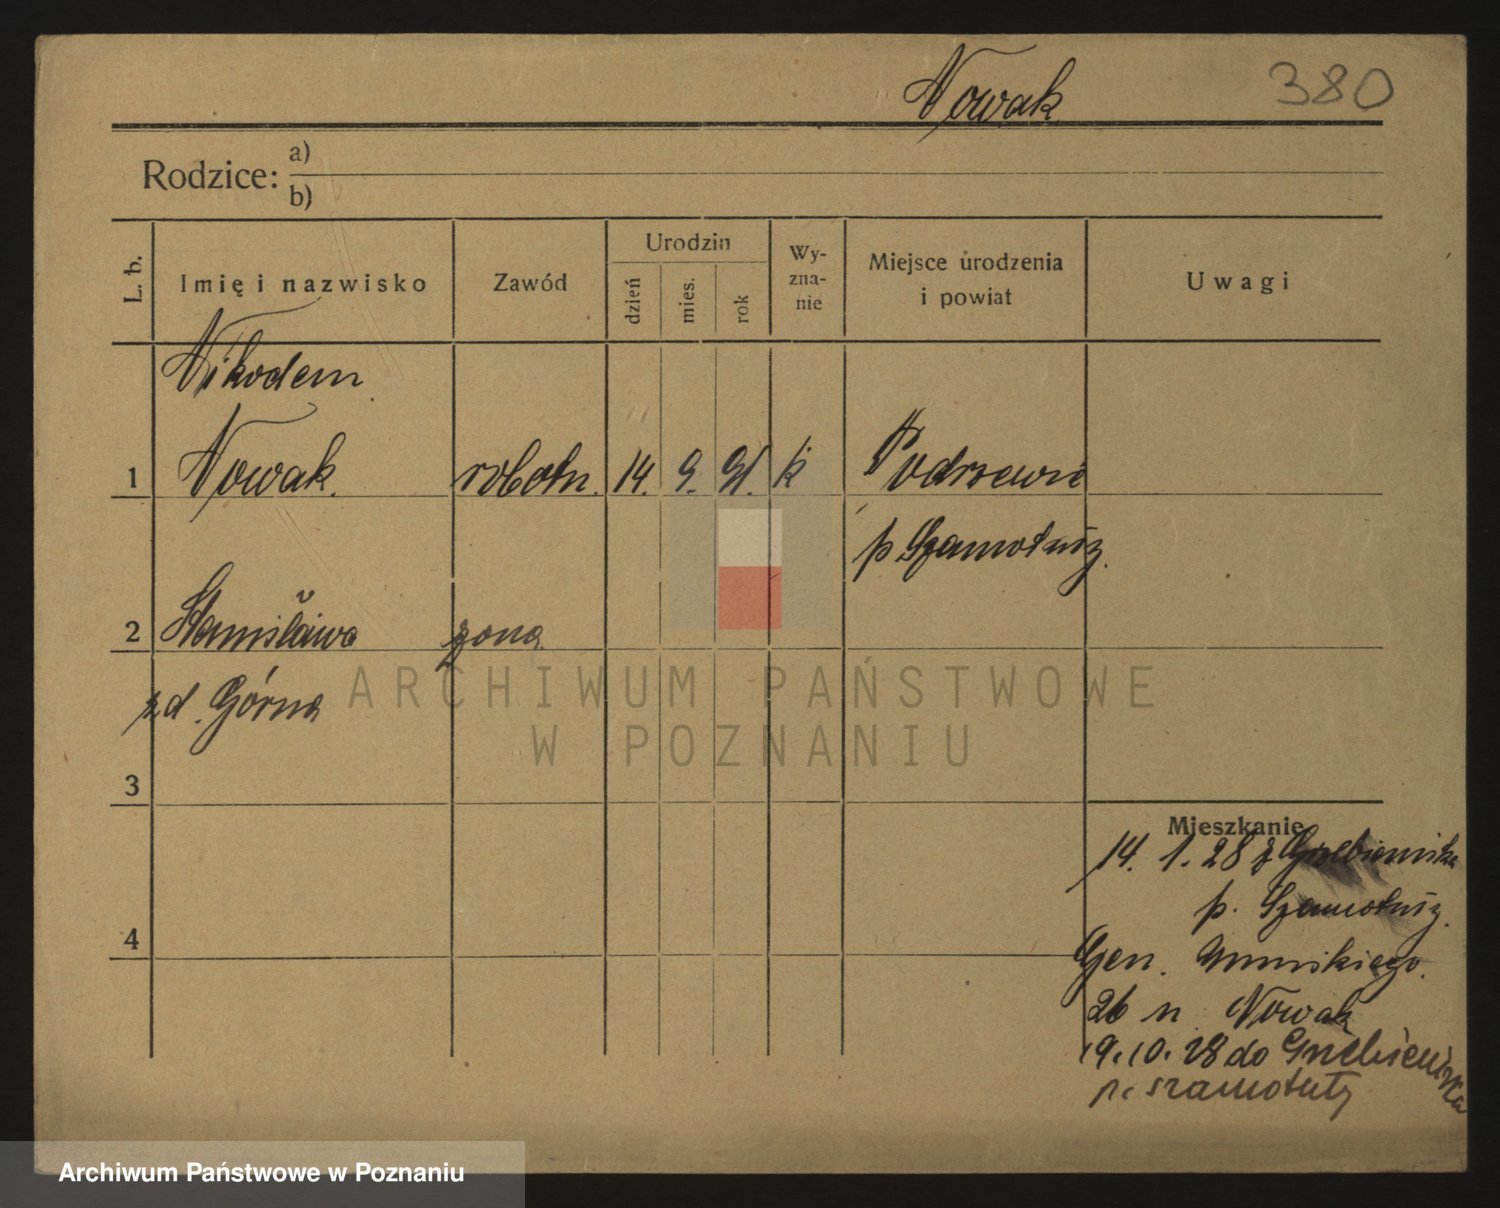 Nowak 380
Rodzice: a)
b)
L. b. Imię i nazwisko Zawód Urodzin dzień mies. rok Wy-zna-nie Miejsce urodzenia i powiat Uwagi
Nikodem
1 Nowak. robotn. 14. 9. 91. k Podrzewie
p. Szamotuły.
2 Stanisława żona
zd. Górna
ARCHIWUM PAŃSTWOWE
W POZNANIU
3
Mieszkanie
14. 1. 28 z Grzebieniska
p. Szamotuły.
4
Gen. Umińskiego.
26 n. Nowak
19. 10. 28 do Grzebieniska
p. Szamotuły
Archiwum Państwowe w Poznaniu